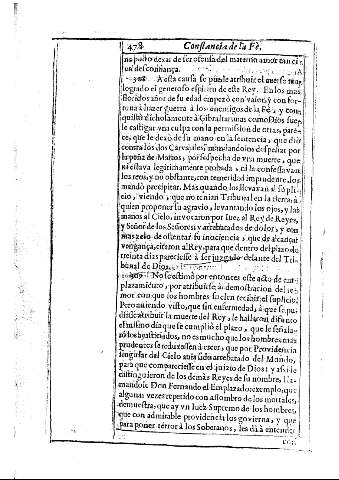 478 Constancia de la Fè.
no pudo dexar de ser osonia del materno amor tan ci-
308 A esta causa se puede atribuir el auerse ma-
logrado el generoso espiritu de este Rey. En los mas
floridos años de su edad empezò con valor, y con for-
tuna à hazer guerra à los enemigos de la Fè, y con-
quistò dichosamente à Gibraltar; mas como Dios sue-
le castigar vna culpa con la permission de otras, pare-
ce, que le dexò de su mano en la sentencia, que diò
contra los dos Carvajales, mandandolos despeñar por
la peña de Martos, por sospecha de vna muerte, que
ni estava legitimamente probada, ni la confessavan
los reos, y no obstante, con temeridad imprudente, los
mandò precipitar. Mas quando los llevavan al supli-
cio, viendo, que no tenian Tribunal en la tierra à
quien proponer su agravio, levantando los ojos, y las
manos al Cielo, invocaron por Iuez al Rey de Reyes,
y Señor de los Señores; y arrebatados de dolor, y con
mas zelo de ostentar su inocencia, que de alcançar
vengança, citaron al Rey, para que dentro del plazo de
treinta dias pareciesse à ser juzgado delante del Tri-
bunal de Dios.
309 No se estimò por entonces este acto de em-
plazamiento, por atribuirse à demostracion del te-
mor con que los hombres suelen recibir el suplicio.
Pero aviendo visto, que sin enfermedad, à que se pu-
diesse atribuir la muerte del Rey, le hallaron difunto
el mismo dia que se cumpliò el plazo, que le señala-
ron los justiciados, no es mucho que los hombres mas
prudentes se reduxessen à creer, que por Providencia
singular del Cielo avia sido arrebatado del Mundo,
para que compareciesse en el juizio de Dios; y assi le
distinguieron de los demàs Reyes de su nombre, lla-
mandole Don Fernando el Emplazado: exemplo, que
algunas vezes repetido con assombro de los mortales,
demuestra, que ay vn Iuez Supremo de los hombres,
que con admirable providencia los govierna, y que
para poner terror à los Soberanos, les dà à entender